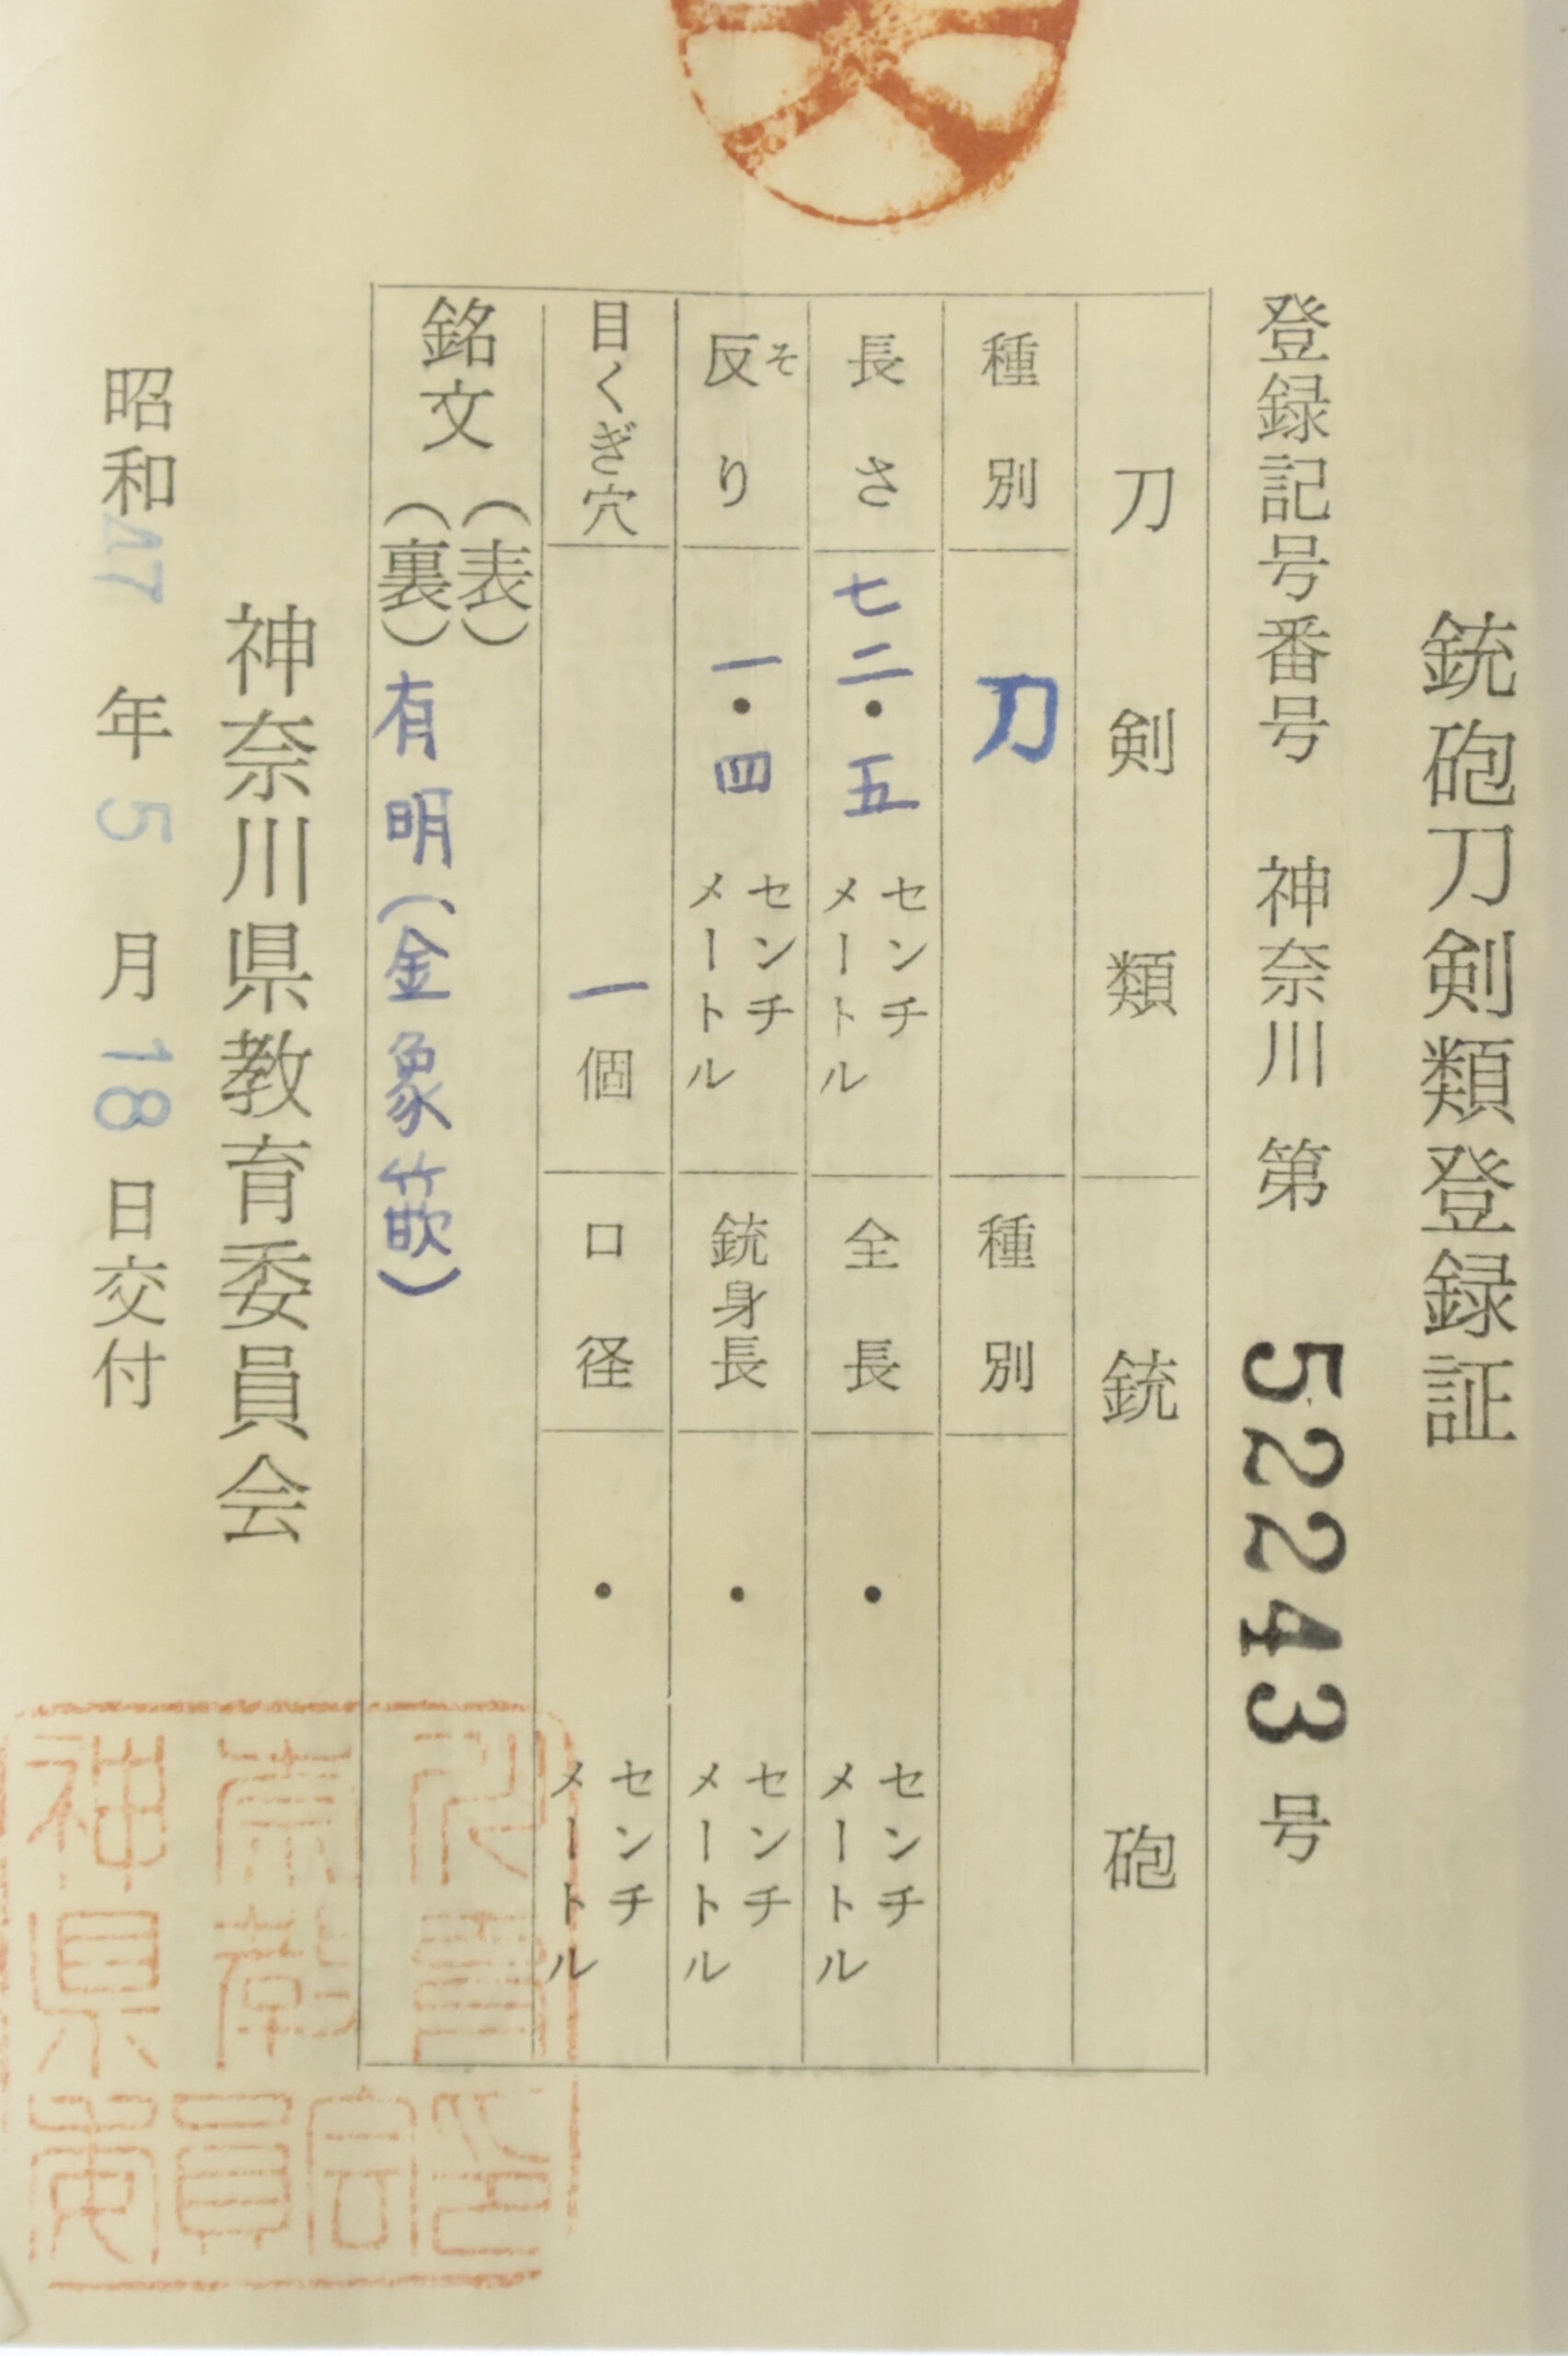 銃砲刀剣類登録証
登録記号番号 神奈川 第 52243 号
刀剣類
銃砲
種別 刀
種別
長さ 七二・五 センチメートル
全長 ・ センチメートル
反り そ 一・四 センチメートル
銃身長 ・ センチメートル
目くぎ穴 一個
口径 ・ センチメートル
銘文 (表)
(裏) 有明(金象嵌)
神奈川県教育委員会
昭和47年5月18日交付